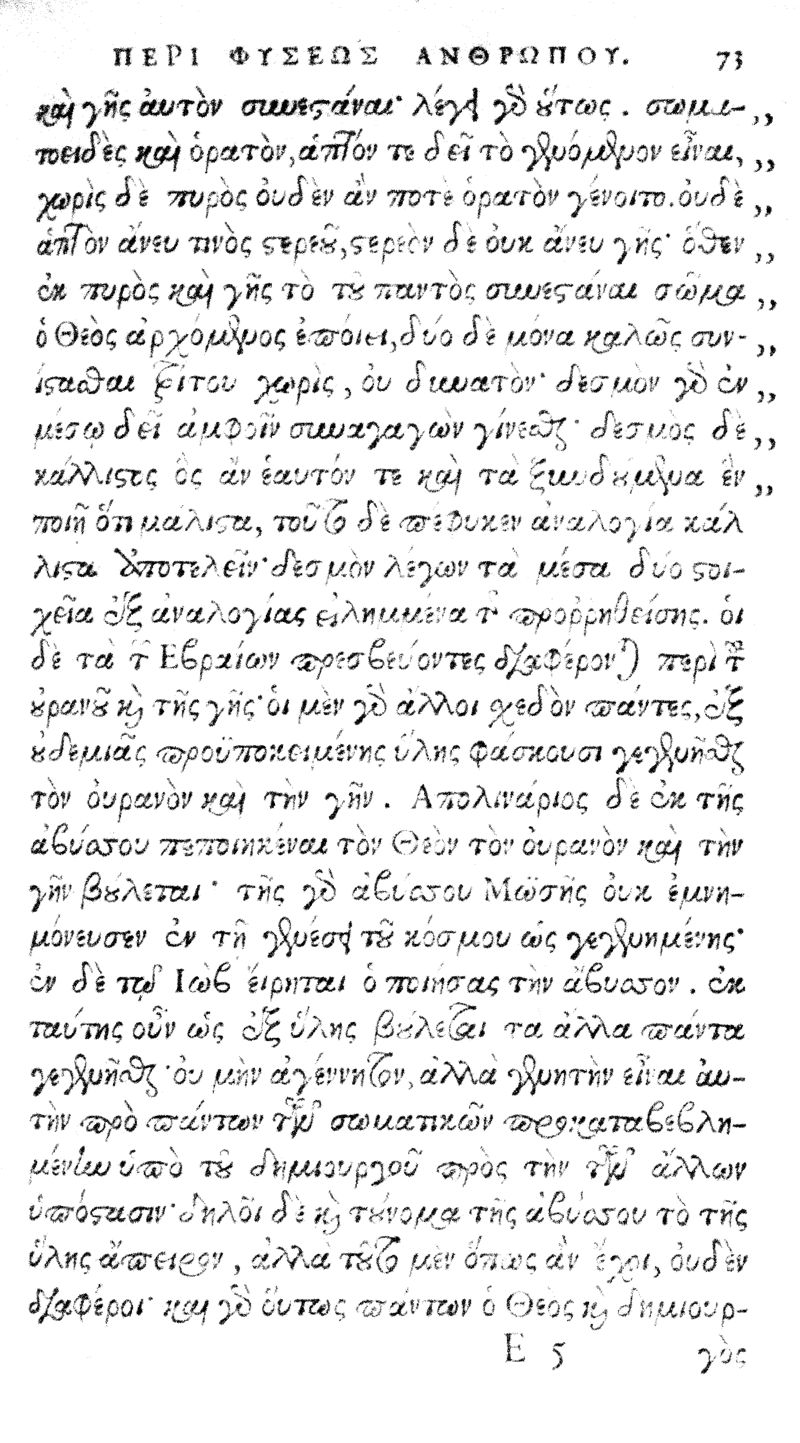 ΠΕΡΙ ΦΥΣΕΩΣ ΑΝΘΡΩΠΟΥ. 73
καὶ γῆς αὐτὸν συνεστάναι· λέγει γὸ οὕτως. σωμα-,,
τοειδὲς καὶ ὁρατὸν, ἁπτόν τε δεῖ τὸ γενόμενον εἶναι, ,,
χωρὶς δὲ πυρὸς οὐδὲν ἄν ποτε ὁρατὸν γένοιτο. οὐδὲ ,,
ἁπτὸν ἄνευ τινὸς στερεοῦ, στερεὸν δὲ οὐκ ἄνευ γῆς· ὅθεν ,,
ἐκ πυρὸς καὶ γῆς τὸ τοῦ παντὸς συνεστάναι σῶμα ,,
ὁ Θεὸς ἀρχόμενος ἐποίει, δύο δὲ μόνα καλῶς συν-,,
ίστασθαι τρίτου χωρὶς, οὐ δυνατὸν· δεσμὸν γὸ ἐν ,,
μέσῳ δεῖ ἀμφοῖν συναγαγὼν γίνεσθαι· δεσμὸς δὲ ,,
κάλλιστος ὃς ἂν ἑαυτόν τε καὶ τὰ ξυνδούμενα ἓν ,,
ποιῇ ὅτι μάλιστα, τοῦτο δὲ πέφυκεν ἀναλογία κάλ
λιστα ἀποτελεῖν· δεσμὸν λέγων τὰ μέσα δύο στοι-
χεῖα ἐξ ἀναλογίας εἰλημμένα τῆς προρρηθείσης. οἱ
δὲ τὰ τῶν Εβραίων πρεσβεύοντες διαφέρονται περὶ τοῦ
οὐρανοῦ καὶ τῆς γῆς· οἱ μὲν γὸ ἄλλοι σχεδὸν πάντες, ἐξ
οὐδεμιᾶς προϋποκειμένης ὕλης φάσκουσι γεγενῆσθαι
τὸν οὐρανὸν καὶ τὴν γῆν. Απολινάριος δὲ ἐκ τῆς
ἀβύσσου πεποιηκέναι τὸν Θεὸν τὸν οὐρανὸν καὶ τὴν
γῆν βούλεται· τῆς γὸ ἀβύσσου Μωϋσῆς οὐκ ἐμνη-
μόνευσεν ἐν τῇ γενέσει τοῦ κόσμου ὡς γεγενημένης·
ἐν δὲ τῷ Ιὼβ εἴρηται ὁ ποιήσας τὴν ἄβυσσον. ἐκ
ταύτης οὖν ὡς ἐξ ὕλης βούλεται τὰ ἄλλα πάντα
γεγενῆσθαι· οὐ μὴν ἀγέννητον, ἀλλὰ γενητὴν εἶναι αὐ-
τὴν πρὸ πάντων τῶν σωματικῶν προκαταβεβλη-
μένην ὑπὸ τοῦ δημιουργοῦ πρὸς τὴν τῶν ἄλλων
ὑπόστασιν· δηλοῖ δὲ καὶ τοὔνομα τῆς ἀβύσσου τὸ τῆς
ὕλης ἄπειρον, ἀλλὰ τοῦτο μὲν ὅπως ἂν ἔχοι, οὐδὲν
διαφέροι· καὶ γὸ οὕτως πάντων ὁ Θεὸς καὶ δημιουρ-
E 5 γὸς